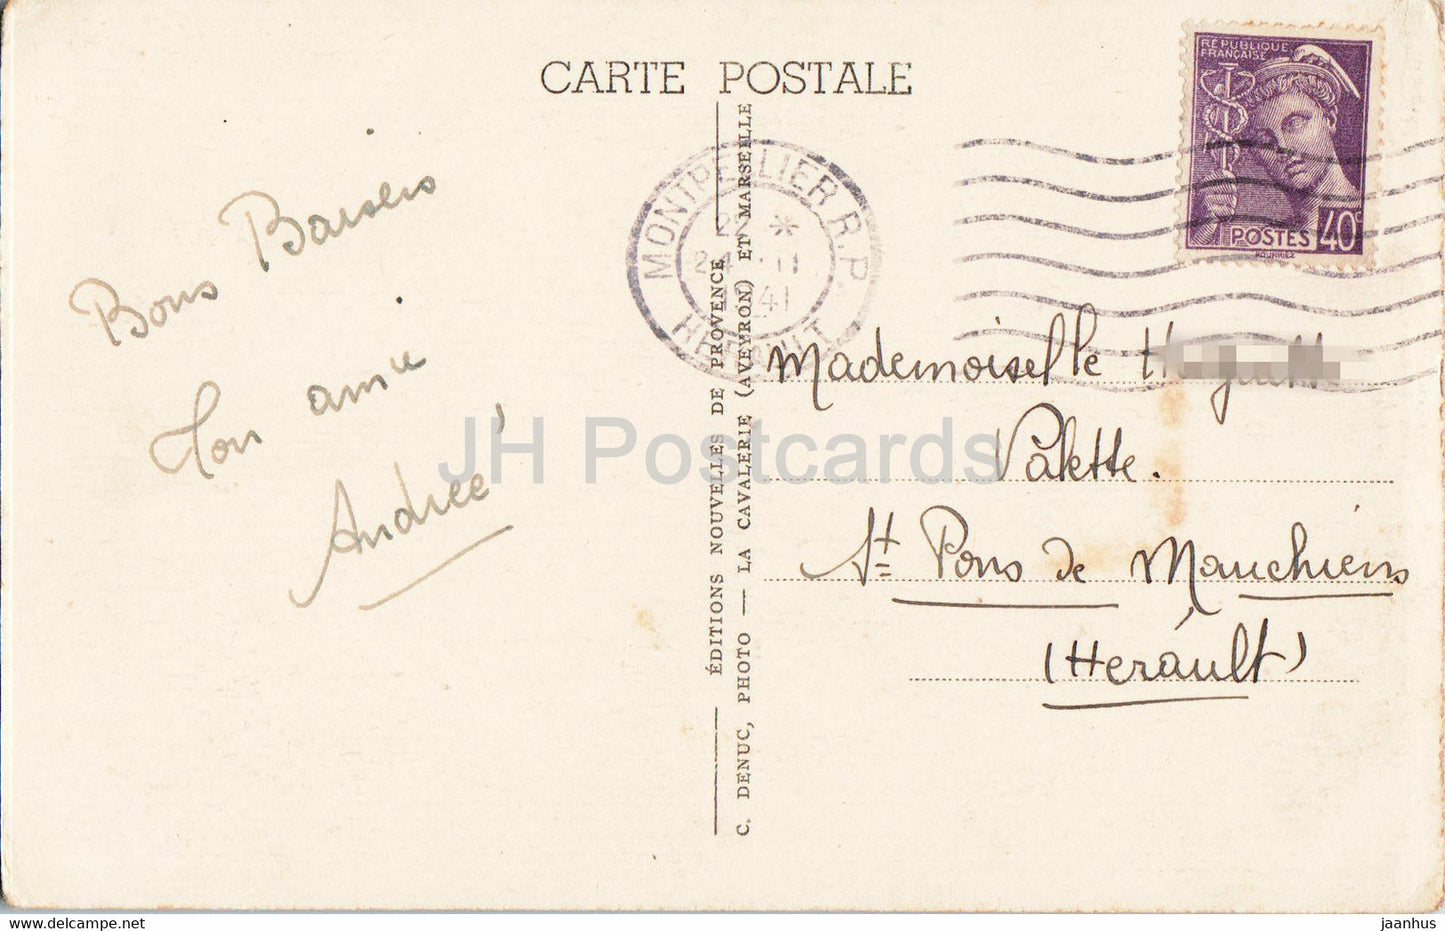 CARTE POSTALE
RÉPUBLIQUE
FRANÇAISE
POSTES 40c
MONTPELLIER R.P.
22 *
24 · II
1941
HERAULT
Bons Baisers
Ton amie
Andrée
ÉDITIONS NOUVELLES DE PROVENCE
C. DENUC, PHOTO — LA CAVALERIE (AVEYRON) ET MARSEILLE
Mademoiselle
Valette.
St Pons de Mauchiens
(Hérault)
JH Postcards
jaanhus.com